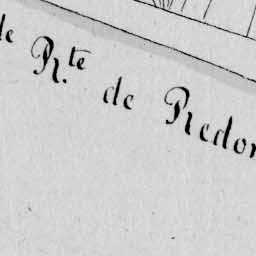 de R.te de Redon